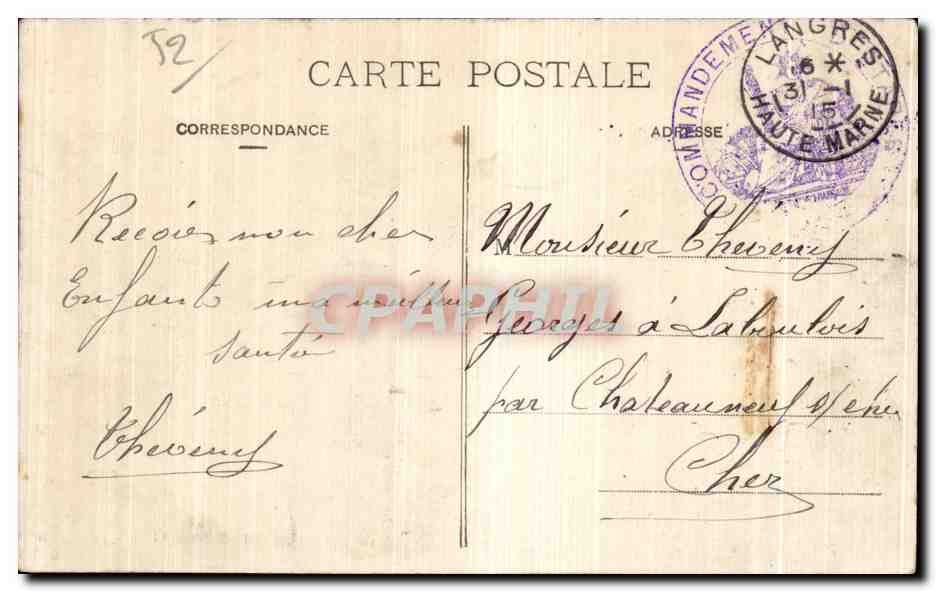 52/
CARTE POSTALE
CORRESPONDANCE
ADRESSE
COMMANDEMEN
LANGRES
6 *
31 -1
15
HAUTE MARNE
Recois mon cher
Enfants ma meilleur
santé
Théveny
M
Monsieur Theveny
Georges à Laboulois
par Chateauneuf s/ cher
Cher
CPAPHIL